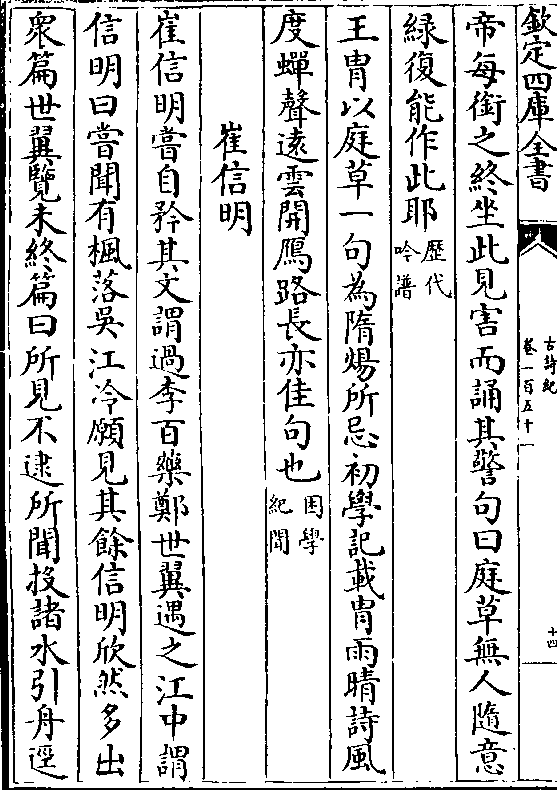 欽定四庫全書
古詩紀
卷一百五十一
十四
帝每銜之終坐此見害而誦其警句曰庭草無人隨意
緑復能作此耶歴代吟譜
王胄以庭草一句為隋煬所忌初學記載胄雨晴詩風
度蟬聲遠雲開鴈路長亦佳句也困學紀聞
崔信明
崔信明嘗自矜其文謂過李百藥鄭世翼遇之江中謂
信明曰嘗聞有楓落吳江冷願見其餘信明欣然多出
衆篇世翼覽未終篇曰所見不逮所聞投諸水引舟逕